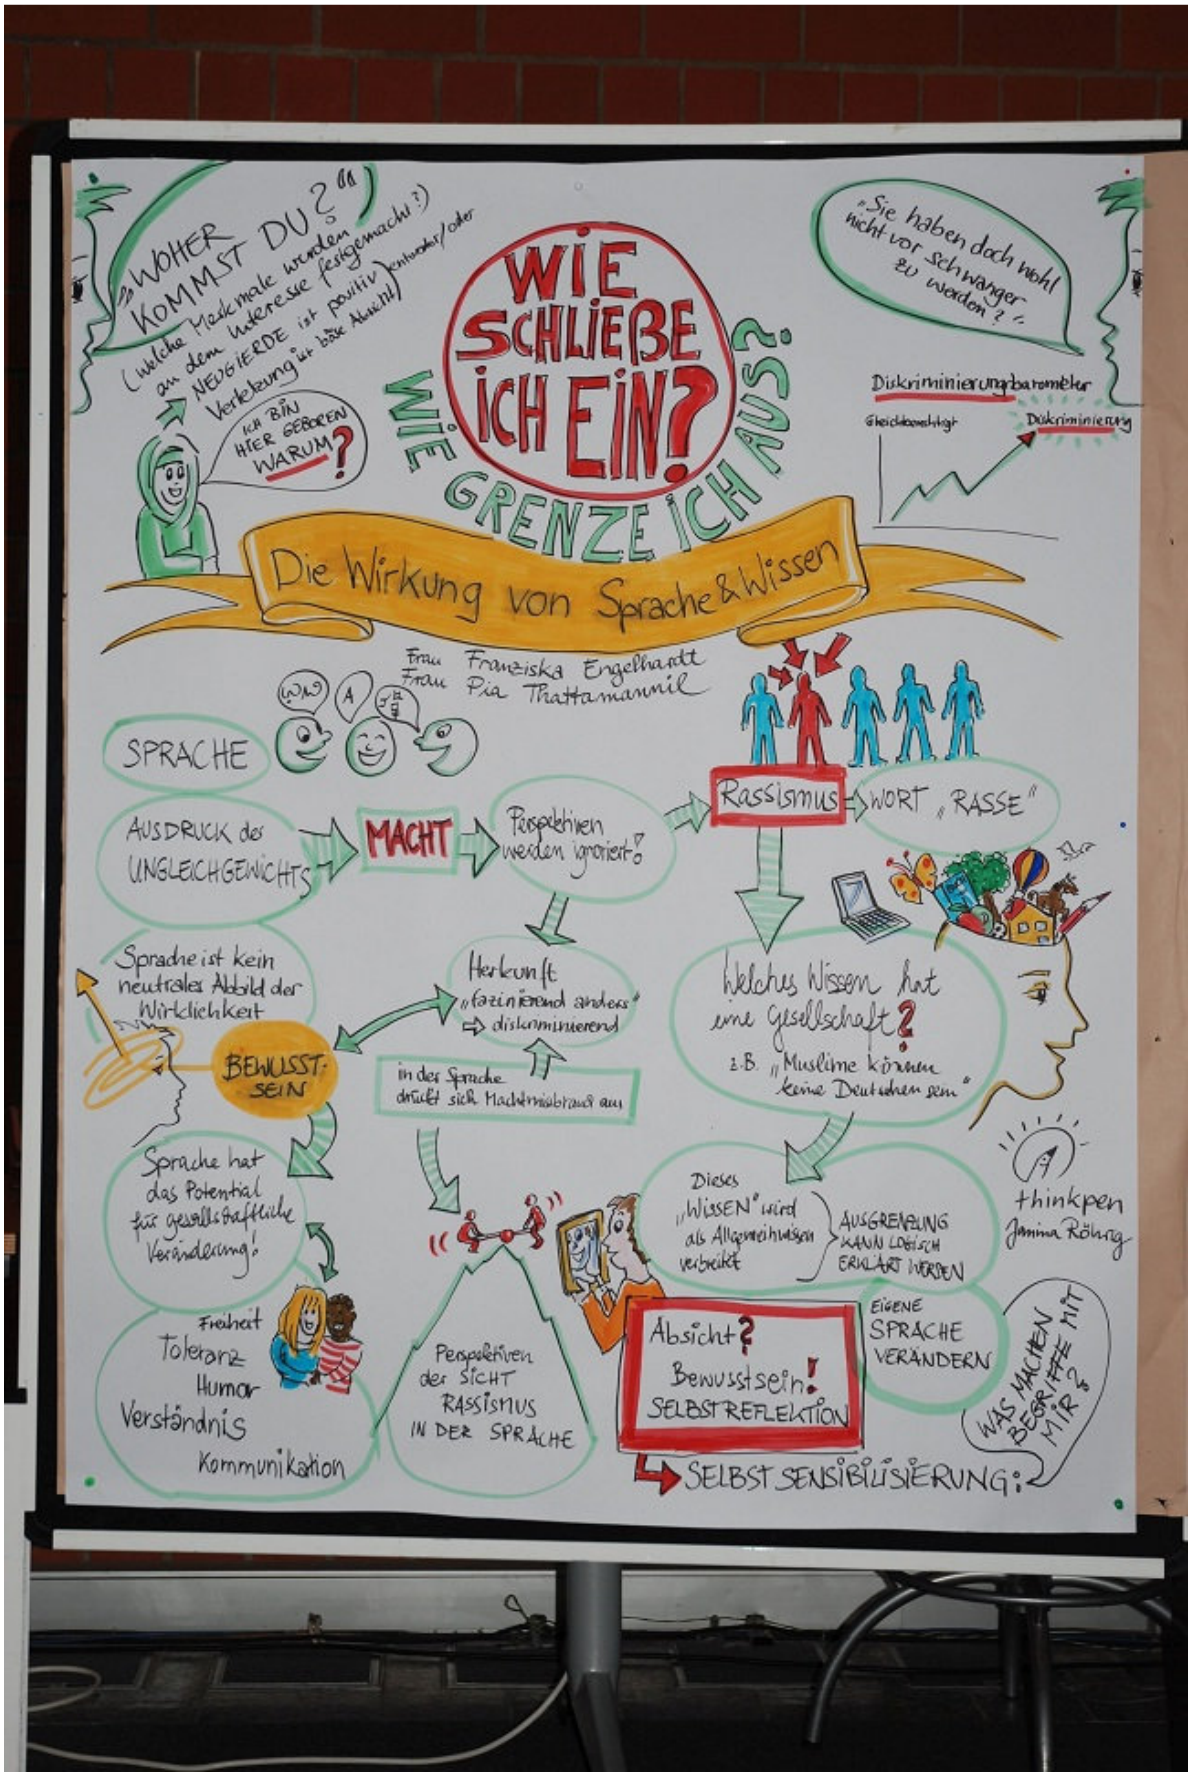 „WOHER
KOMMST DU?“
(Welche Merkmale werden
an dem Interesse festgemacht?)
NEUGIERDE ist positiv
Verletzung ist böse Absicht
entweder/oder
ICH BIN
HIER GEBOREN
WARUM?
WIE
SCHLIEßE
ICH EIN?
WIE GRENZE ICH AUS?
„Sie haben doch wohl
nicht vor schwanger
zu werden?“
Diskriminierungsbarometer
Gleichberechtigt
Diskriminierung
Die Wirkung von Sprache & Wissen
Frau Franziska Engelhardt
Frau Pia Thattamannil
A
SPRACHE
AUSDRUCK des
UNGLEICHGEWICHTS
MACHT
Perspektiven
werden ignoriert!
Rassismus
WORT „RASSE“
Sprache ist kein
neutrales Abbild der
Wirklichkeit
BEWUSST-
SEIN
Herkunft
„fazinierend anders“
⇨ diskriminierend
in der Sprache
drückt sich Machtmissbrauch aus
Welches Wissen hat
eine Gesellschaft?
z.B. „Muslime können
keine Deutschen sein“
Sprache hat
das Potential
für gesellschaftliche
Veränderung!
Dieses
„WISSEN“ wird
als Allgemeinwissen
verbreitet
AUSGRENZUNG
KANN LOGISCH
ERKLÄRT WERDEN
thinkpen
Janina Röhrig
Freiheit
Toleranz
Humor
Verständnis
Kommunikation
Perspektiven
der SICHT
RASSISMUS
IN DER SPRACHE
Absicht?
Bewusstsein!
SELBSTREFLEKTION
EIGENE
SPRACHE
VERÄNDERN
WAS MACHEN
BEGRIFFE MIT
MIR?
SELBSTSENSIBILISIERUNG: